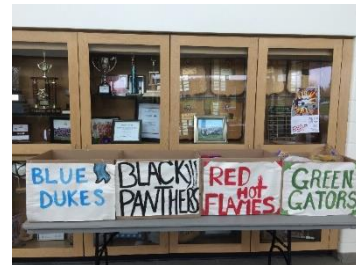 BLUE
DUKES
BLACK!!!
PANTHERS
RED
HOT
FLAMES
GREEN
GATORS